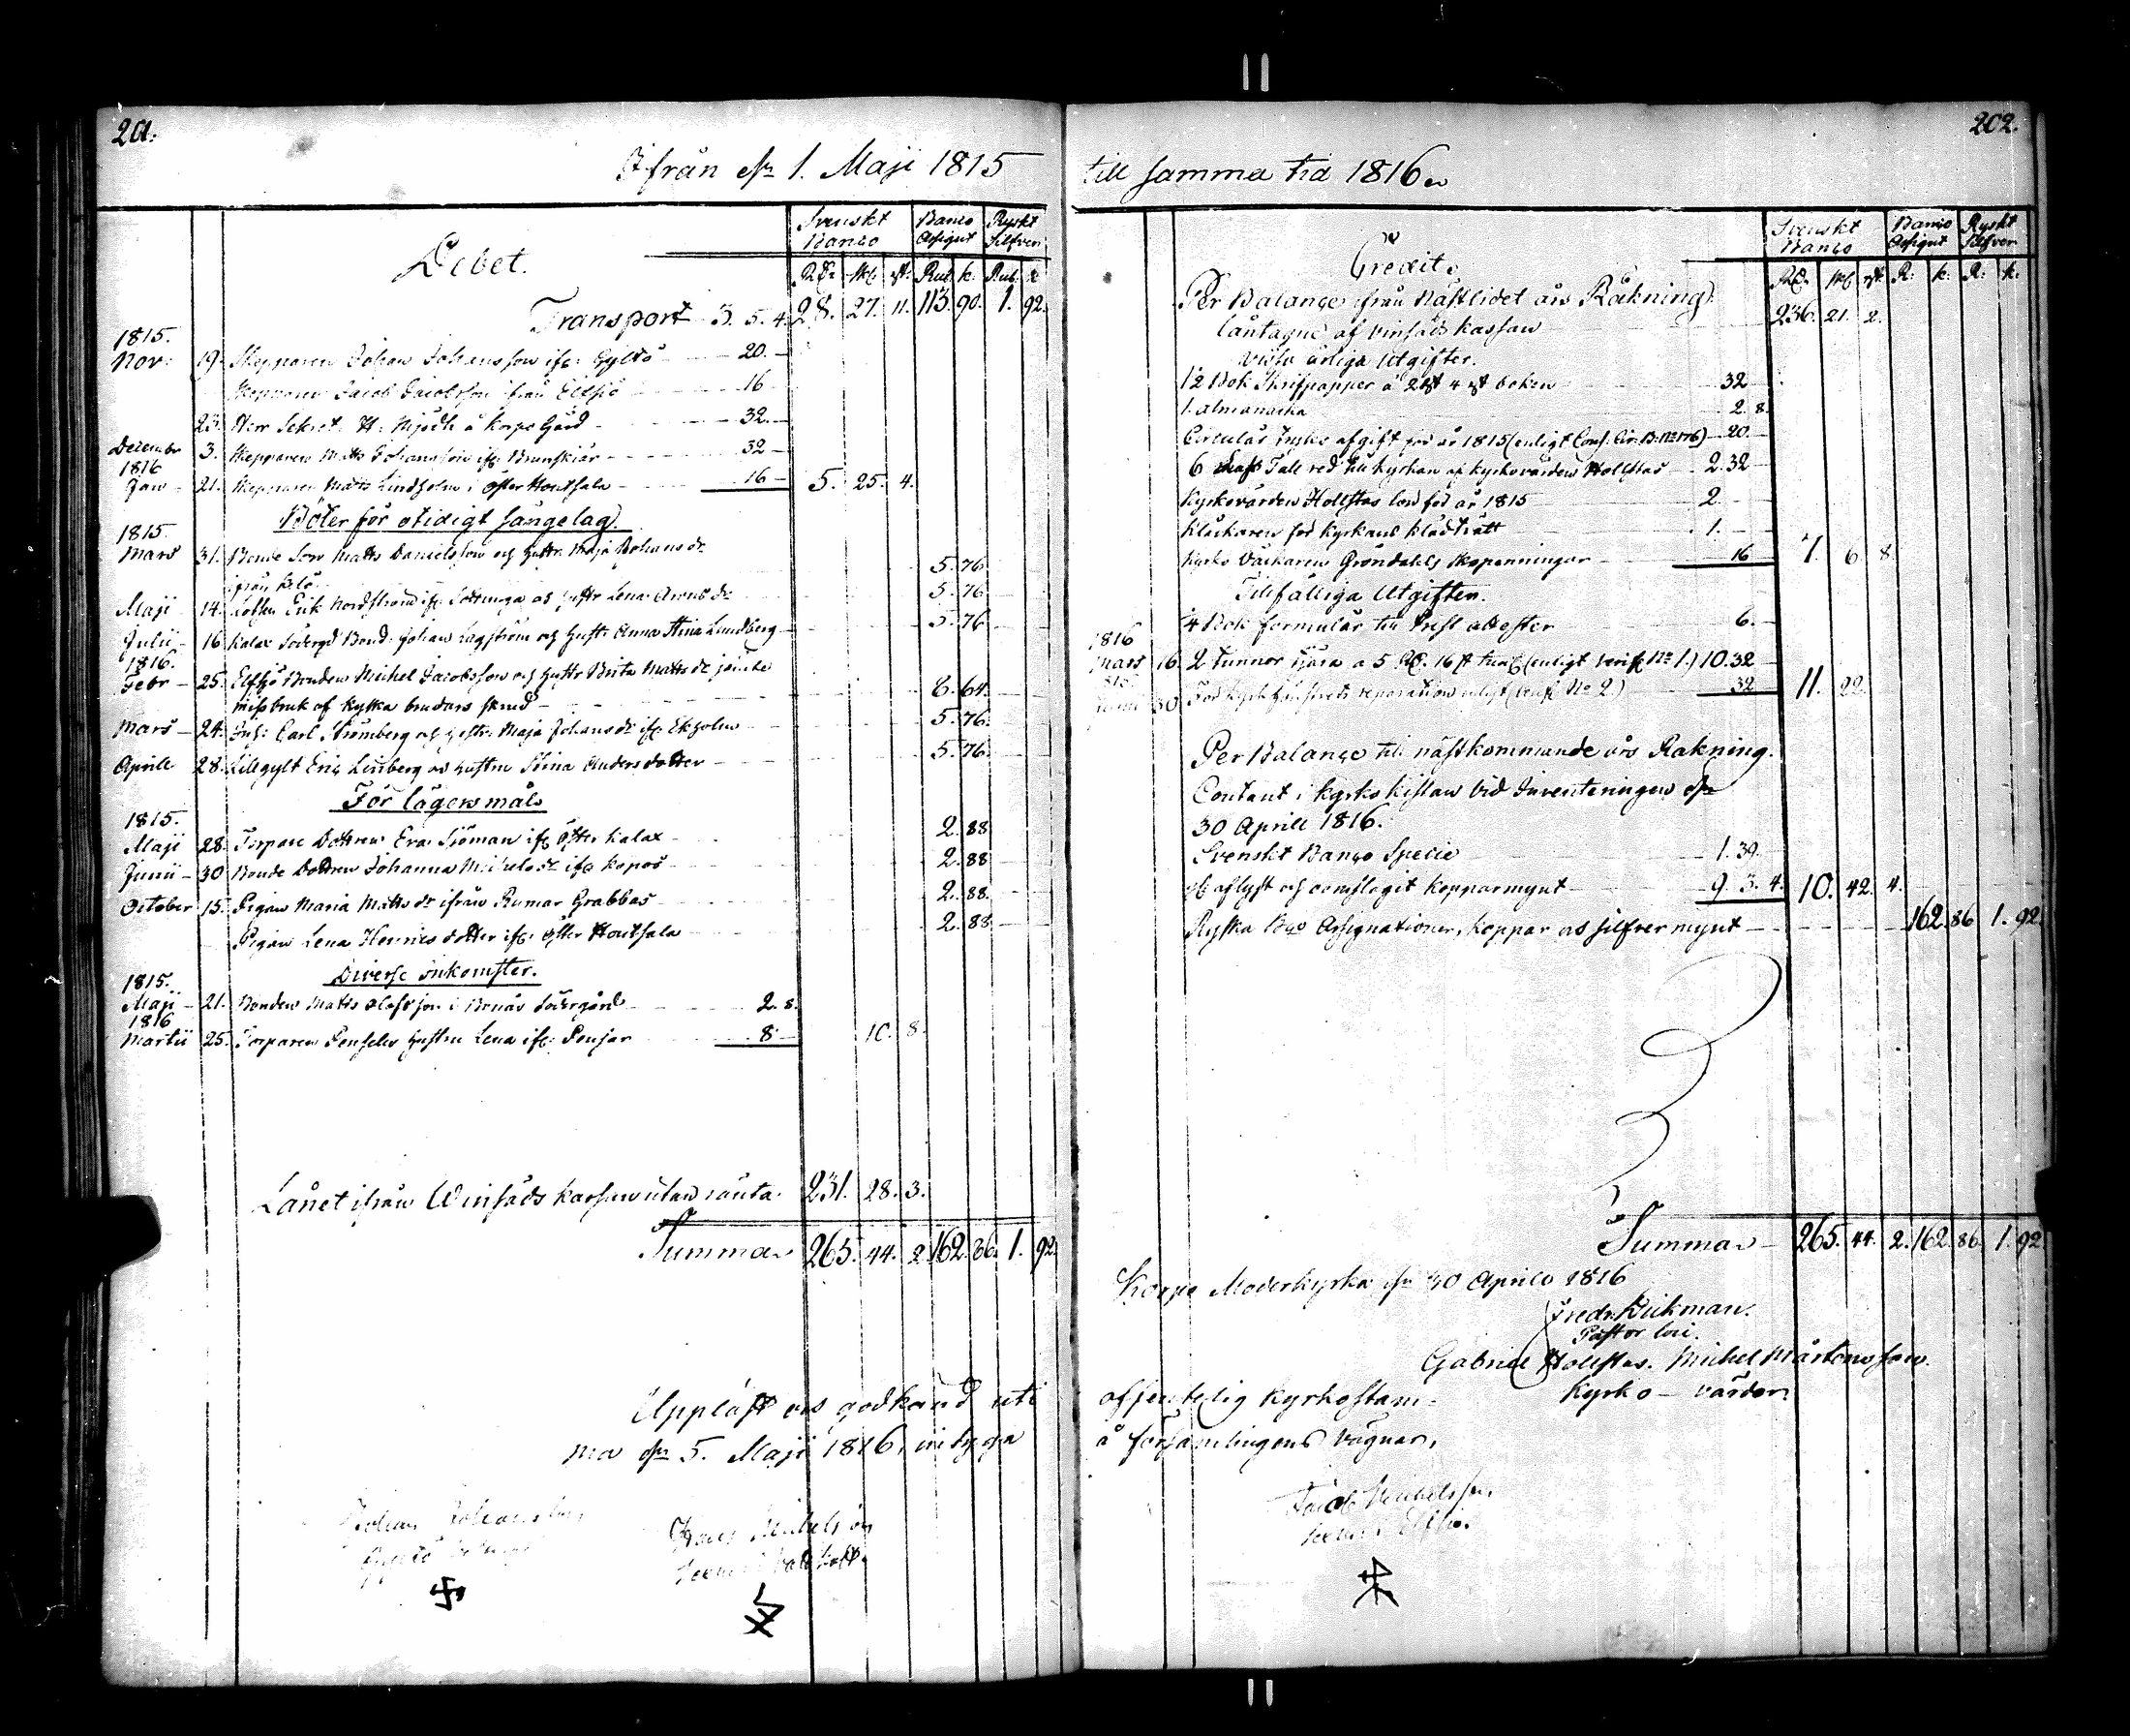 201.
Ifrån dn 1. Maji 1815
Debet.
Svenskt Banco | Banco Assignt | Ryskt Silfver
RD: sk: rst: Rub k: Rub k
Transport 3. 5. 4. 28. 27. 11. 113. 90. 1. 92.
1815.
Nov: 19. Skepparen Johan Johansson ifr Gyltö 20.
Skepparen Jacob Jacobsson ifrån Elfsjö 16
23. Herr Sekret. H: Mjödh å Korpo Gård 32.
December 3. Skepparen Matts Johansson ifr Brunskiär 32
1816
Jan 21. Skepparen Matts Lindholm i Öster Houtsala 16 5. 25. 4.
Böter för otidigt sängelag.
1815.
Mars 31. Bonde Son Matts Danielsson och hustr. Maja Johans dr
ifrån 5. 76
Maji 14. Erik Nordström ifr och hustr Lena dr 5. 76
Julii 16 Kalax Södergd Bond. Johan Lagström och hustr. Anna Stina Lundberg 5. 76
1816.
Febr 25. Elfsjö Bonden Michel Jacobsson och hustr Brita Matts dr jemte
missbruk af kyrko brudars skrud 8. 64.
Mars 24. Carl Strömberg och hustr. Maja Johans dr ifr Ekholm 5. 76.
Aprill 28. Lillgylt Eric Linberg och hustru Stina Andersdotter 5. 76.
För lägersmål
1815.
Maji 28. Torpare Dottren Eva Sjöman ifr Öster Kalax 2. 88
Junii 30 Bonde Dottren Johanna Michels dr ifr Kopos 2. 88
October 15. Pigan Maria Matts dr ifrån Rumar Grabbas 2. 88.
Pigan Lena Henricsdotter ifr Öster Houtsala 2. 88.
Diverse inkomster.
1815.
Maji 21. Bonden Matts Olofsson i Bonäs Södergård 2. 8.
1816
Martii 25. Torparen hustru Lena ifr 8 10. 8.
Lånet ifrån Winsäds kassan utan ränta. 231. 28. 3.
Summa 265. 44. 2. 162. 86. 1. 92
Uppläst och godkänd uti
ma dn 5. Maji 1816, intyga
Johan Johansson
Gyltö
Michelsson
202.
till samma tid 1816
Credit
Svenskt Banco | Banco Assignt | Ryskt Silfver
RD: sk rst R: k: R: k.
Per Balance ifrån Nästlidet års Räkning
låntagne af Vinsäds kassan 236. 21. 2.
Vissa årliga Utgifter.
12 Bok Skrifpapper á 2 sk 4 rst boken 32
1. almanacka 2. 8.
Circulär trycks afgift för år 1815 (enligt Cons. Cir. B. No 176) 20
6 Tall ved till Kyrkan af kyrkovärden Hollstas 2. 32
Kyrkovärden Hollstas lön för år 1815 2.
Klåckaren för Kyrkans klädtvätt 1.
Kyrko Väckaren Gröndahls skopenningar 16 7. 6. 8.
Tillfälliga Utgifter.
4 Bok formulär till Prest attester 6.
1816
Mars 16. 2 Tunnor Tjära a 5 RD. 16 sk (enligt Verif. No 1.) 10. 32
30 reparation enligt (Verif No 2.) 32 11. 22.
Per Balance till nästkommande års Räkning.
Contant i kyrko kistan vid Inventeringen dn
30 Aprill 1816.
Svenskt Banco Specie 1. 39.
aflyst och omslagit kopparmynt 9. 3. 4. 10. 42. 4.
Ryska Bco Assignationer, koppar och silfver mynt 162. 86 1. 92
Summa 265. 44. 2. 162. 86. 1. 92
Korpo Moderkyrka dn 30 Aprill 1816
Fredr. Dickman.
Pastor loci.
Gabriel Hollstas. Michel Mårtensson.
Kyrko-värdar.
offentelig kyrkostäm-
å församlingens vägnar,
Jacob Michelsson